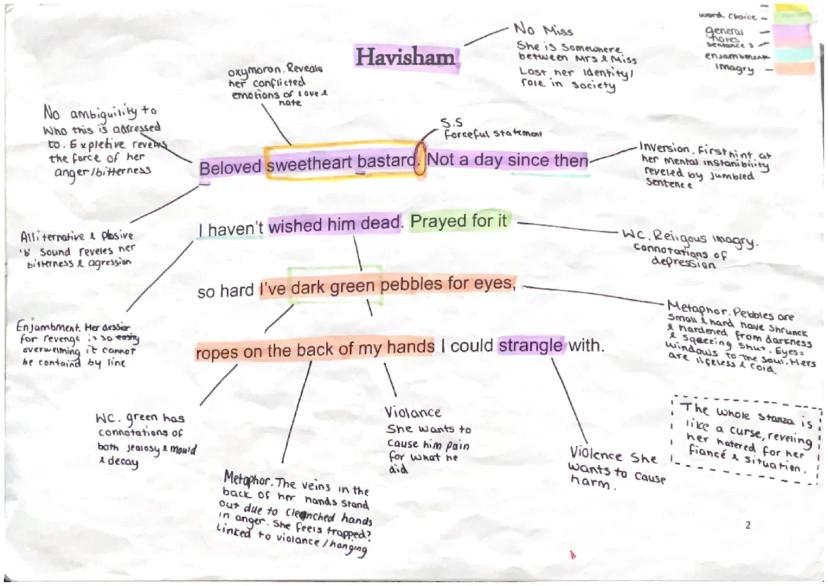 word choice -
general
notes
sentence s
enjambment
imagry
Havisham
No Miss
She is somewhere
between Mrs & Miss
Lost her identity/
role in society
oxymoron. Reveals
her conflicted
emotions of love &
hate
No ambiguility to
who this is adressed
to. Expletive reveals
the force of her
anger/bitterness
S.S
forceful statement
Beloved sweetheart bastard. Not a day since then
Inversion. First hint at
her mental instanibility
reveled by jumbled
sentence
Alliternative & plosive
'b' sound reveles her
bitterness & agression
I haven't wished him dead. Prayed for it
WC. Reiigous imagry.
connotations of
depression
so hard I've dark green pebbles for eyes,
Enjambment. Her desier
for revenge is so
overwelming it cannot
be containd by line
Metaphor. Pebbles are
small & hard have shrunck
& hardened from darkness
& squeezing shut. Eyes=
windows to the soul. Hers
are lifeless & cold.
ropes on the back of my hands I could strangle with.
WC. green has
connotations of
both jealosy & mould
& decay
Violance
She wants to
cause him pain
for what he
did
Metaphor. The veins in the
back of her hands stand
out due to clenched hands
in anger. She feels trapped?
Linked to violance/hanging
Violence She
wants to cause
harm.
The whole stanza is
like a curse, reveling
her hatered for her
fiancé & situation.
2